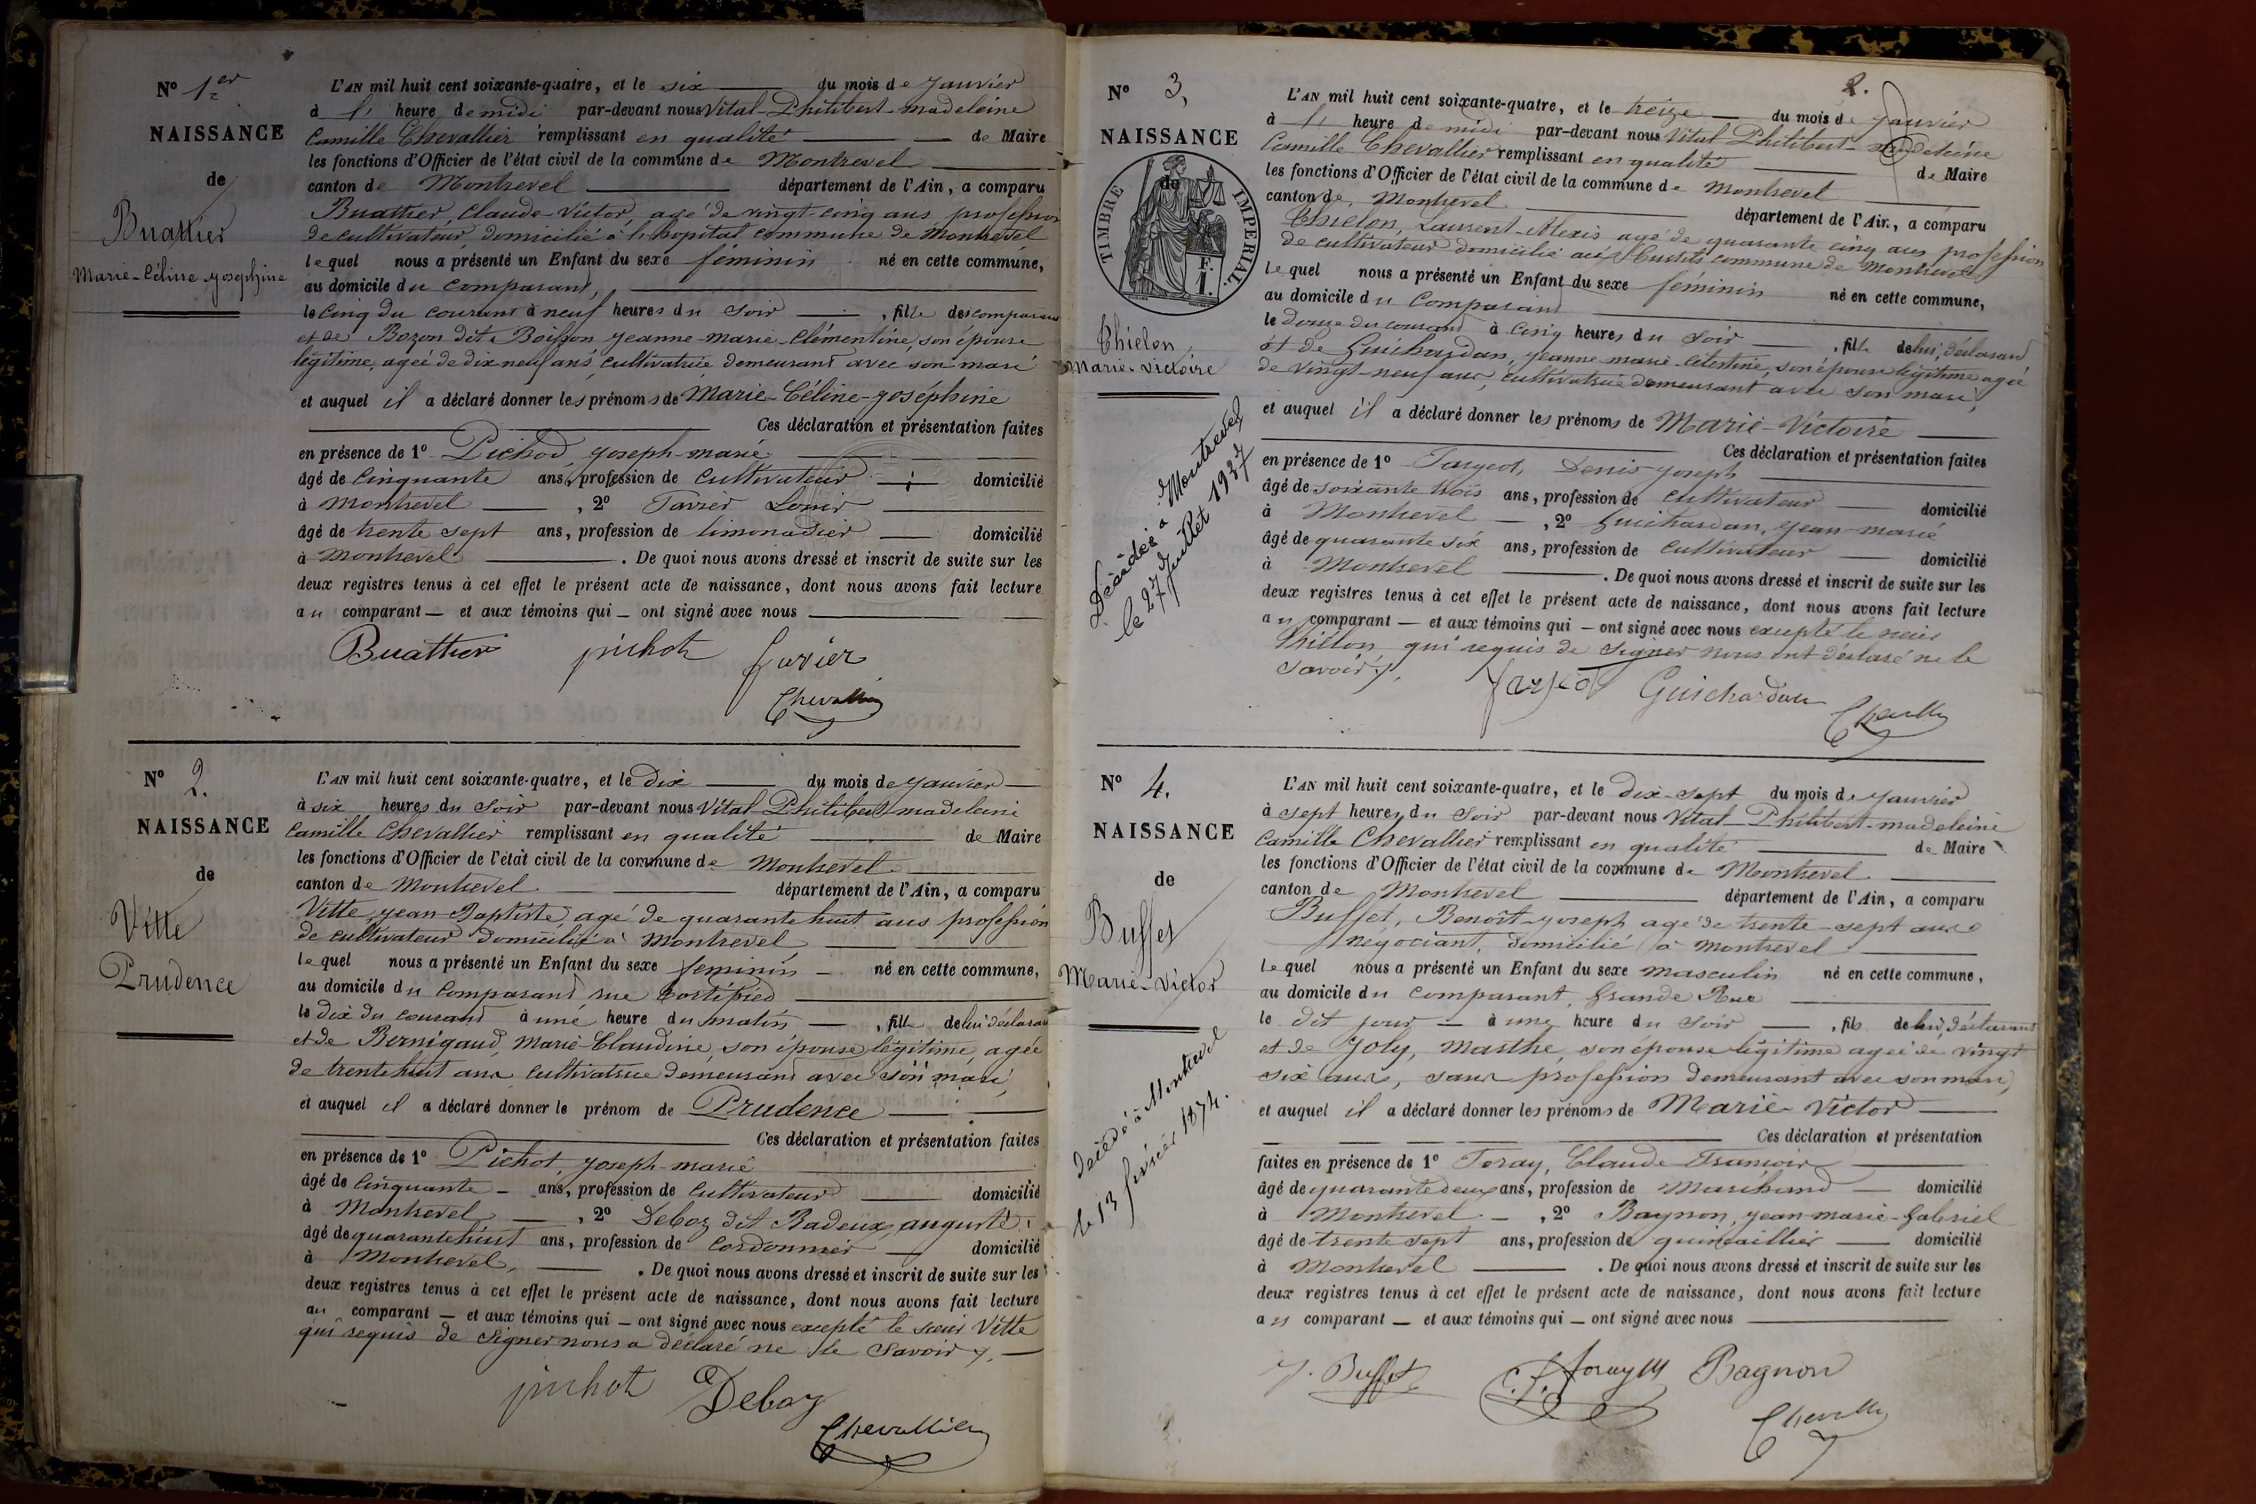 N° 1er
NAISSANCE
de
Buattier
Marie-Céline-Joséphine
L'AN mil huit cent soixante-quatre, et le six du mois de Janvier
à l' heure de midi par-devant nous Vital-Philibert-Madeleine
Camille Chevallier remplissant en qualité de Maire
les fonctions d'Officier de l'état civil de la commune de Montrevel
canton de Montrevel département de l'Ain, a comparu
Buattier, Claude-Victor, agé de vingt-cinq ans, profession
de cultivateur, domicilié à l'hopital commune de Montrevel
lequel nous a présenté un Enfant du sexe féminin né en cette commune,
au domicile du comparant,
le cinq du courant à neuf heures du soir, fille du comparant
et de Bozon dit Boisson Jeanne-Marie-Clémentine, son épouse
légitime, agée de dix neuf ans, cultivatrice demeurant avec son mari
et auquel il a déclaré donner les prénoms de Marie-Céline-Joséphine
Ces déclaration et présentation faites
en présence de 1° Pichod, Joseph-Marie
âgé de cinquante ans, profession de cultivateur domicilié
à Montrevel, 2° Favier Louis
âgé de trente sept ans, profession de limonadier domicilié
à Montrevel. De quoi nous avons dressé et inscrit de suite sur les
deux registres tenus à cet effet le présent acte de naissance, dont nous avons fait lecture
au comparant et aux témoins qui ont signé avec nous
Buattier pichot favier
Chevallier
N° 2.
NAISSANCE
de
Vitte
Prudence
L'AN mil huit cent soixante-quatre, et le dix du mois de Janvier
à six heures du soir par-devant nous Vital Philibert Madeleine
Camille Chevallier remplissant en qualité de Maire
les fonctions d'Officier de l'état civil de la commune de Montrevel
canton de Montrevel département de l'Ain, a comparu
Vitte, Jean-Baptiste, agé de quarante huit ans profession
de cultivateur domicilié à Montrevel
lequel nous a présenté un Enfant du sexe féminin né en cette commune,
au domicile du comparant rue
le dix du courant à une heure du matin, fille de lui déclarant
et de Bernigaud, Marie-Claudine, son épouse légitime, agée
de trente huit ans cultivatrice demeurant avec son mari,
et auquel il a déclaré donner le prénom de Prudence
Ces déclaration et présentation faites
en présence de 1° Pichot, Joseph-Marie
âgé de cinquante ans, profession de cultivateur domicilié
à Montrevel, 2° Deboz dit Badeux, auguste,
âgé de quarante huit ans, profession de cordonnier domicilié
à Montrevel, . De quoi nous avons dressé et inscrit de suite sur les
deux registres tenus à cet effet le présent acte de naissance, dont nous avons fait lecture
au comparant et aux témoins qui ont signé avec nous excepté le sieur Vitte
qui requis de signer nous a déclaré ne le savoir.
pichot Deboz
Chevallier
2.
N° 3,
NAISSANCE
de
TIMBRE IMPERIAL.
F.
1.
Thielon
Marie-Victoire
Décédée à Montrevel
le 27 Juillet 1937
L'AN mil huit cent soixante-quatre, et le treize du mois de Janvier
à l' heure de midi par-devant nous Vital Philibert-Madeleine
Camille Chevallier remplissant en qualité de Maire
les fonctions d'Officier de l'état civil de la commune de Montrevel
canton de Montrevel département de l'Ain, a comparu
Thielon, Laurent-Alexis agé de quarante cinq ans profession
de cultivateur domicilié aux commune de Montrevel
lequel nous a présenté un Enfant du sexe féminin né en cette commune,
au domicile du comparant
le douze du courant à cinq heures du soir, fille de lui, déclarant
et de Guichardan, Jeanne-Marie-Célestine, son épouse légitime agée
de vingt-neuf ans, cultivatrice demeurant avec son mari,
et auquel il a déclaré donner les prénoms de Marie-Victoire
Ces déclaration et présentation faites
en présence de 1° Fargeot, Denis-Joseph
âgé de soixante trois ans, profession de cultivateur domicilié
à Montrevel, 2° Guichardan, Jean-Marie
âgé de quarante six ans, profession de cultivateur domicilié
à Montrevel. De quoi nous avons dressé et inscrit de suite sur les
deux registres tenus à cet effet le présent acte de naissance, dont nous avons fait lecture
au comparant et aux témoins qui ont signé avec nous excepté le sieur
Thielon qui requis de signer nous ont déclaré ne le
savoir,
Guichardan
Chevallier
N° 4.
NAISSANCE
de
Buffet
Marie-Victor
décédé à Montrevel
le 13 février 1874.
L'AN mil huit cent soixante-quatre, et le dix-sept du mois de Janvier
à sept heures du soir par-devant nous Vital-Philibert-Madeleine
Camille Chevallier remplissant en qualité de Maire
les fonctions d'Officier de l'état civil de la commune de Montrevel
canton de Montrevel département de l'Ain, a comparu
Buffet, Benoît-Joseph agé de trente-sept ans
négociant, domicilié à Montrevel
lequel nous a présenté un Enfant du sexe masculin né en cette commune,
au domicile du comparant, Grande Rue
le dit jour à une heure du soir, fils de lui, déclarant
et de Joly, Marthe, son épouse légitime agée de vingt
six ans, sans profession demeurant avec son mari,
et auquel il a déclaré donner les prénoms de Marie-Victor
Ces déclaration et présentation
faites en présence de 1° Foray, Claude-François
âgé de quarante deux ans, profession de Marchand domicilié
à Montrevel, 2° Bagnon, Jean-Marie-Gabriel
âgé de trente sept ans, profession de quincaillier domicilié
à Montrevel. De quoi nous avons dressé et inscrit de suite sur les
deux registres tenus à cet effet le présent acte de naissance, dont nous avons fait lecture
au comparant et aux témoins qui ont signé avec nous
J. Buffet foray Bagnon
Chevallier